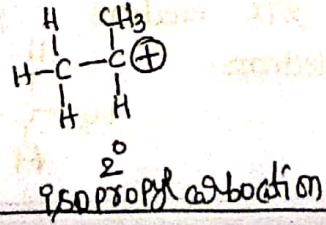 H CH₃
H-C-C⊕
H H
2°
isopropyl carbocation